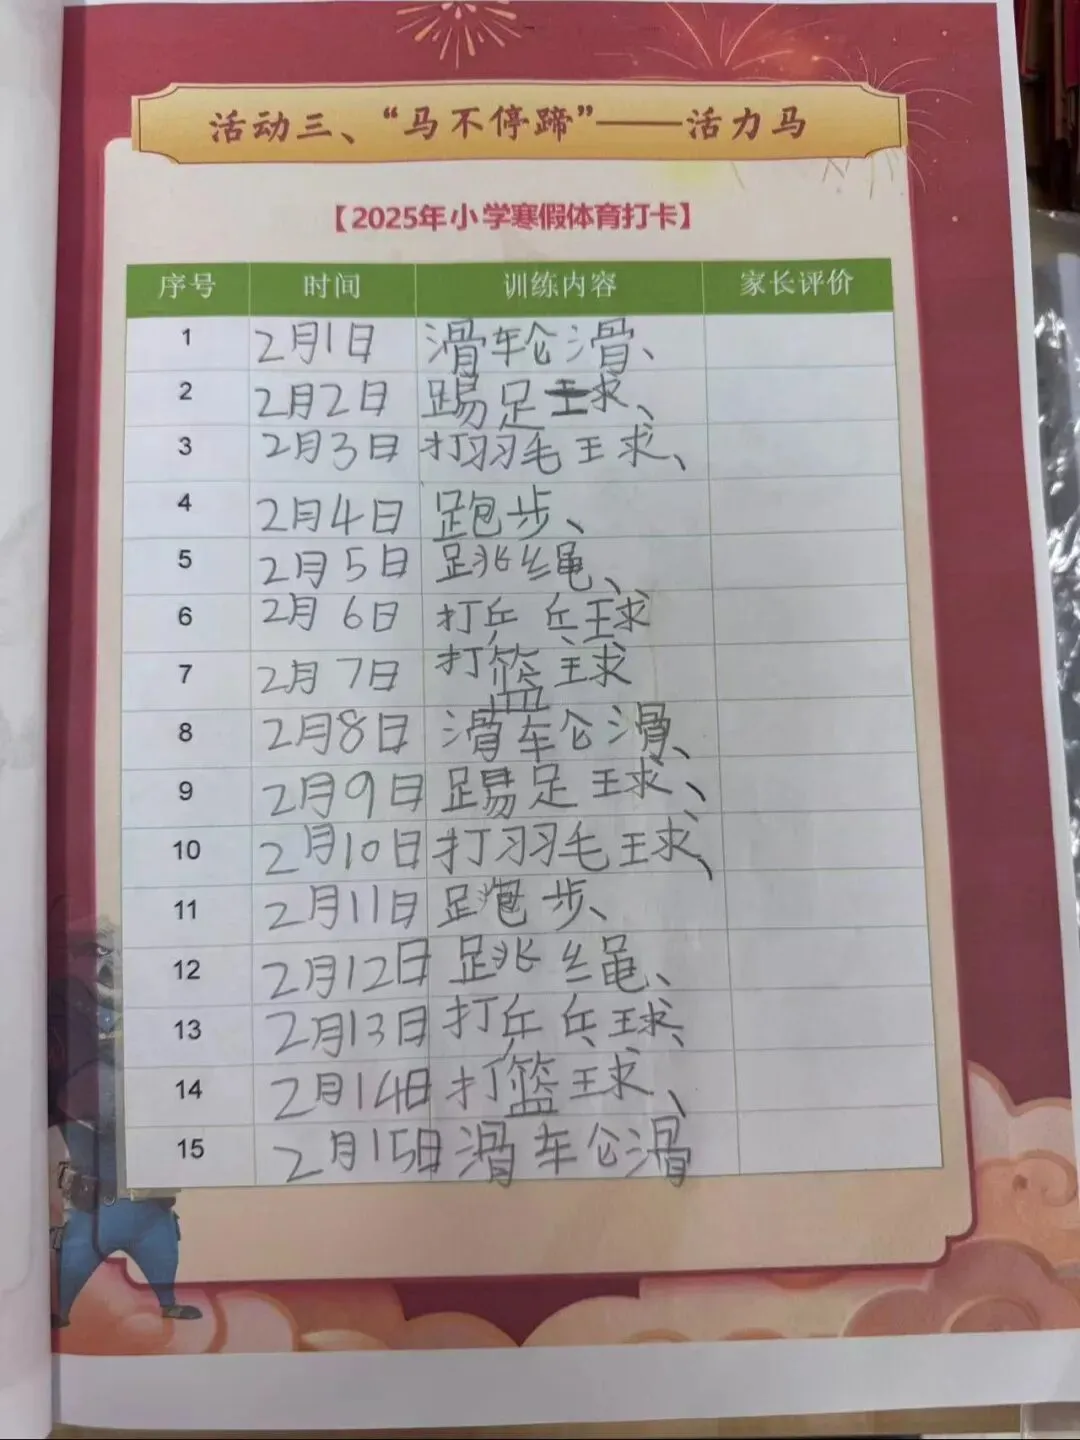 活动三、“马不停蹄”——活力马
【2025年小学寒假体育打卡】
序号 时间 训练内容 家长评价
1 2月1日 滑轮滑、
2 2月2日 踢足球、
3 2月3日 打羽毛球、
4 2月4日 跑步、
5 2月5日 跳绳、
6 2月6日 打乒乓球
7 2月7日 打篮球
8 2月8日 滑轮滑、
9 2月9日 踢足球、
10 2月10日 打羽毛球、
11 2月11日 跑步、
12 2月12日 跳绳、
13 2月13日 打乒乓球、
14 2月14日 打篮球、
15 2月15日 滑轮滑